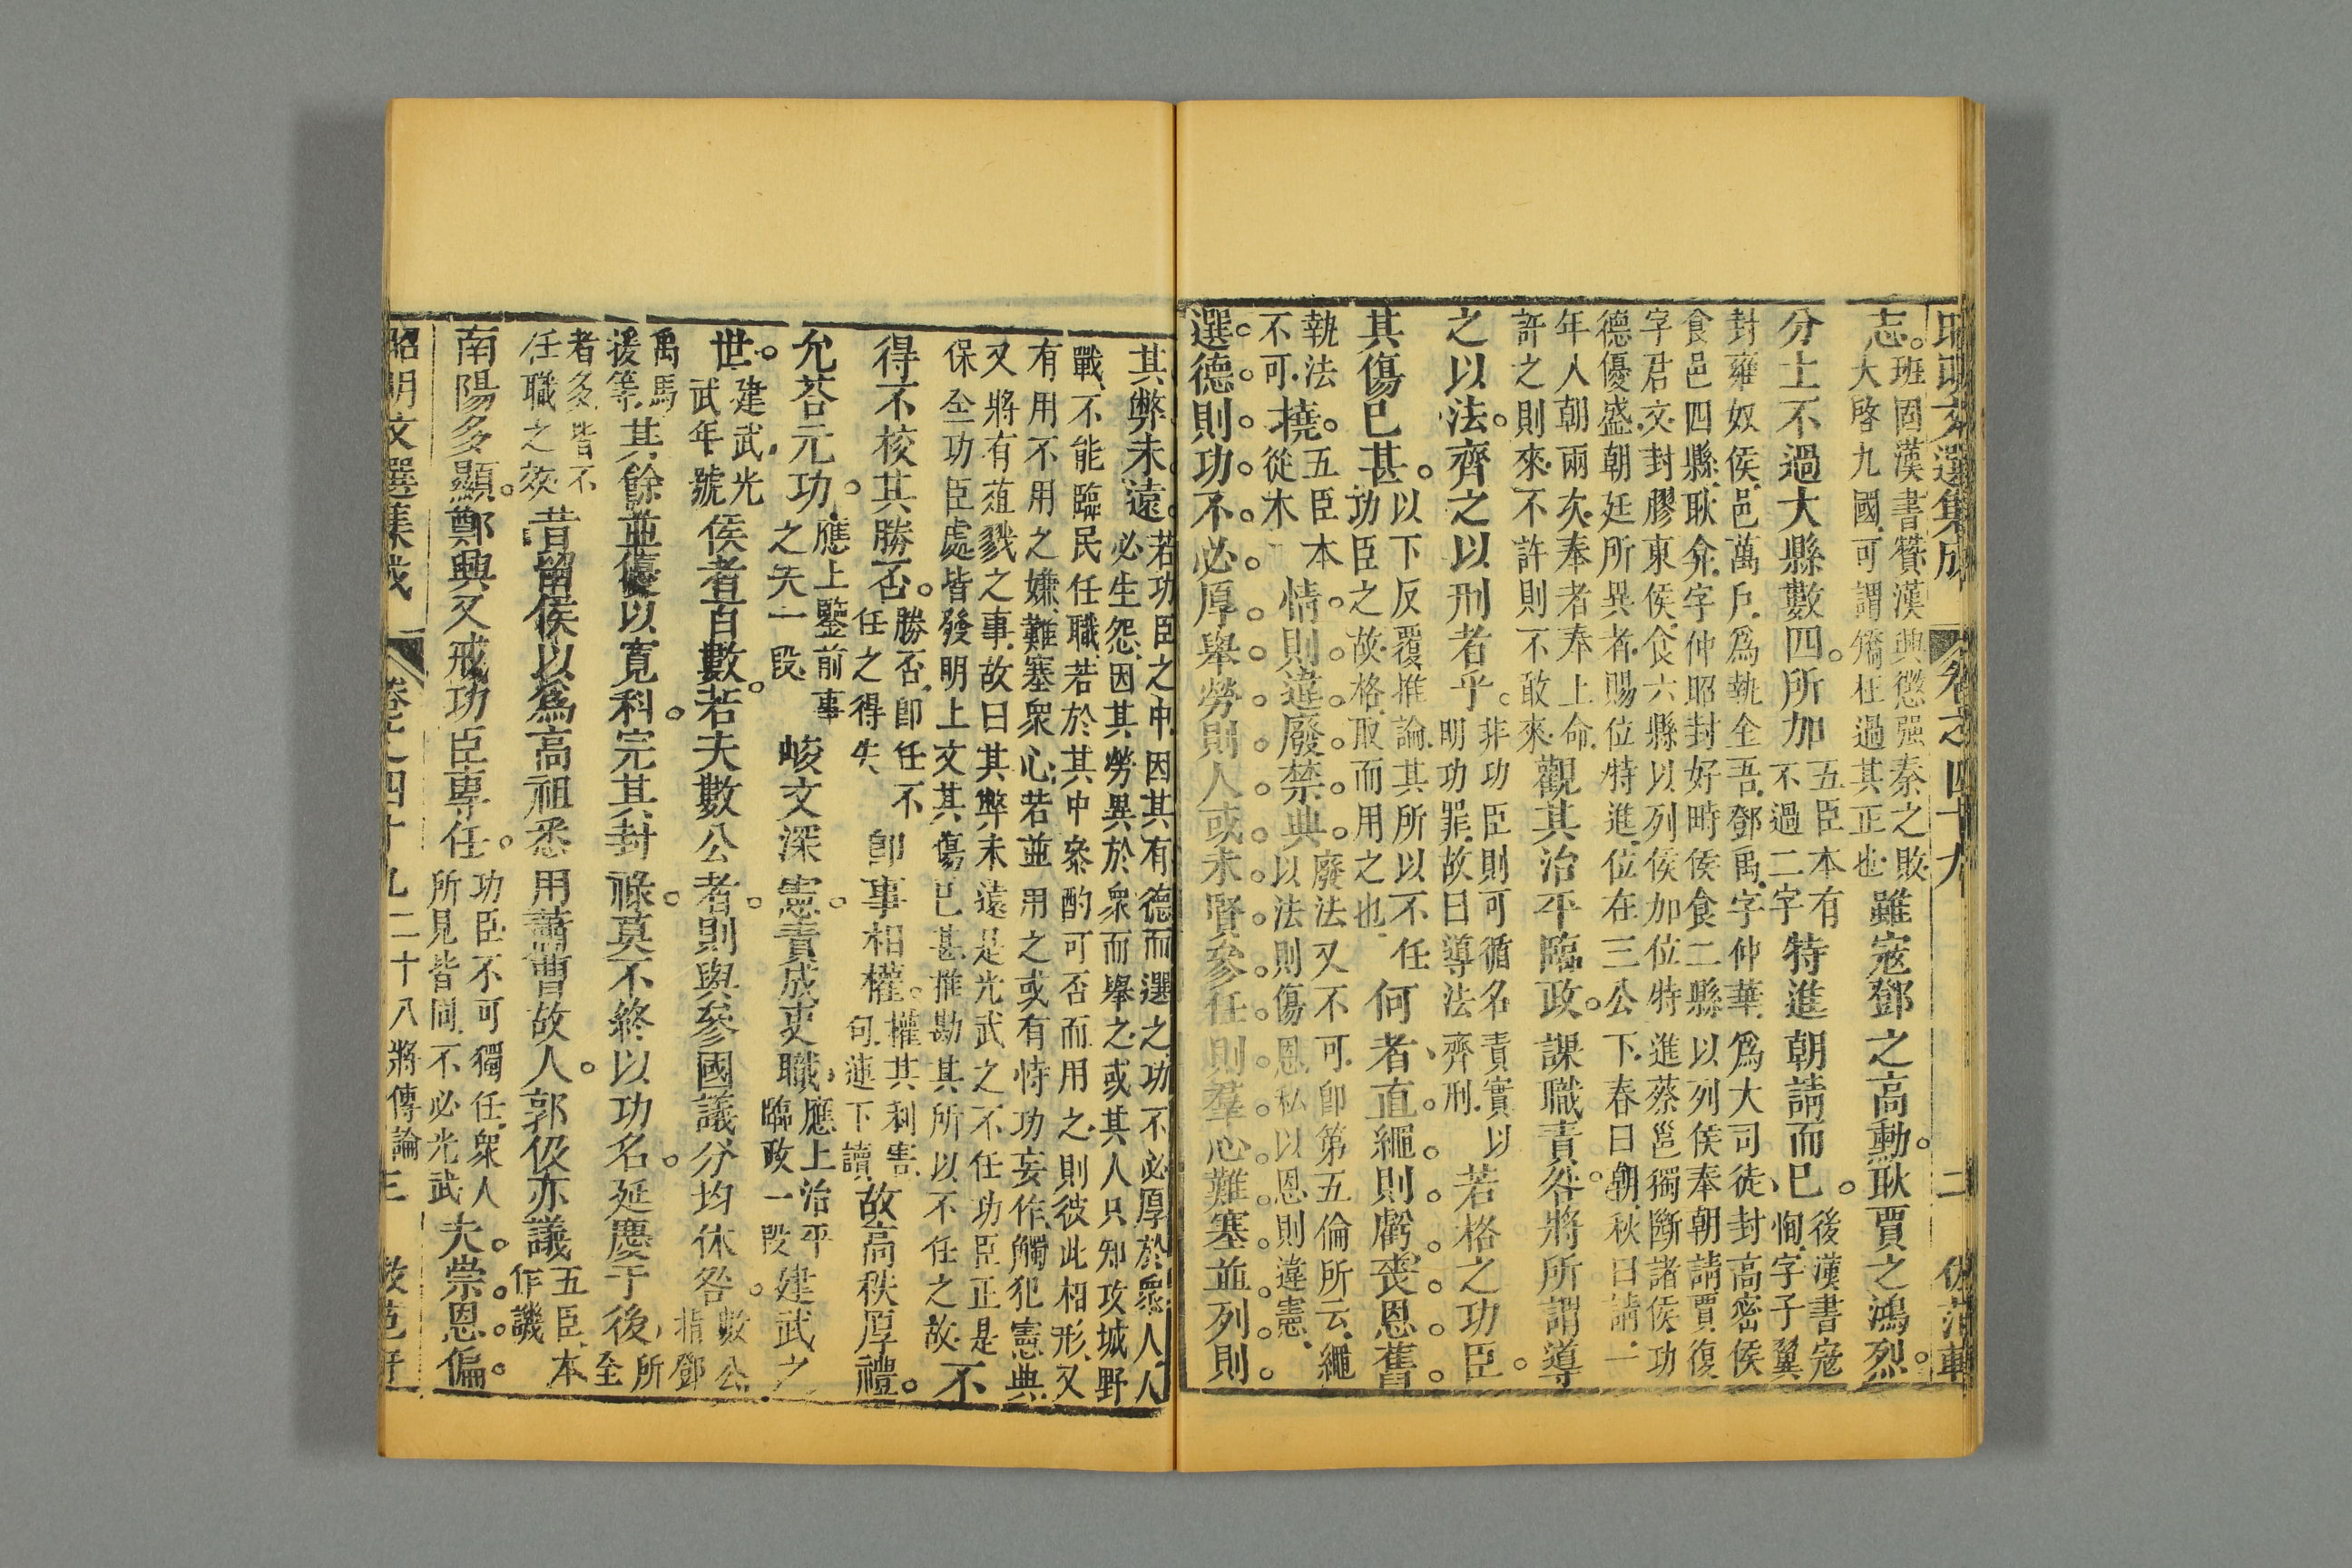 昭明文選集成 卷之四十九 二 倣范軒
志。班固漢書贊漢興懲强秦之敗大啓九國可謂矯枉過其正也雖寇鄧之高勳。耿賈之鴻烈。
分土不過大縣數四。所加五臣本有不過二字特進朝請而已。後漢書寇恂字子翼
封雍奴侯邑萬戶爲執金吾鄧禹字仲華爲大司徒封高密侯食邑四縣耿弇字仲昭封好畤侯食二縣以列侯奉朝請賈復
字君文封膠東侯食六縣以列侯加位特進蔡邕獨斷諸侯功德優盛朝廷所異者賜位特進位在三公下春曰朝秋曰請一
年人朝兩次奉者奉上命許之則來不許則不敢來觀其治平臨政。課職責咎。將所謂導
之以法。齊之以刑者乎。非功臣則可循名責實以明功罪故曰導法齊刑若格之功臣。
其傷已甚。以下反覆推論其所以不任功臣之故格取而用之也何者、直繩則虧喪恩舊
執法。五臣本不可撓從木情則違廢禁典廢法又不可卽第五倫所云繩以法則傷恩私以恩則違憲
選德則功不必厚舉勞則人或未賢參任則羣心難塞並列則
其弊未遠若功臣之中因其有德而選之功不必厚於衆人人必生怨因其勞異於衆而舉之或其人只知攻城野
戰不能臨民任職若於其中叅酌可否而用之則彼此相形又有用不用之嫌難塞衆心若並用之或有恃功妄作觸犯憲典
又將有葅戮之事故曰其弊未遠是光武之不任功臣正是保全功臣處皆發明上文其傷已甚推勘其所以不任之故不
得不校其勝否。勝否卽任不任之得失卽事相權。權其利害句連下讀故高秩厚禮。
允荅元功。應上鑒前事之失一段峻文深憲。責成吏職、應上治平臨政一段建武之
世。建武光武年號侯者百數。若夫數公者。則與參國議分均休咎。數公指鄧
禹馬援等其餘並優以寬科。完其封祿。莫不終以功名。延慶于後、所至
者多皆不任職之效昔留侯以爲高祖悉用蕭曹故人。郭伋亦議五臣本作譏
南陽多顯。鄭興又戒功臣專任。功臣不可獨任衆人所見皆同不必光武夫崇恩偏
昭明文選集成 卷之四十九 二十八將傳論 三 倣范軒